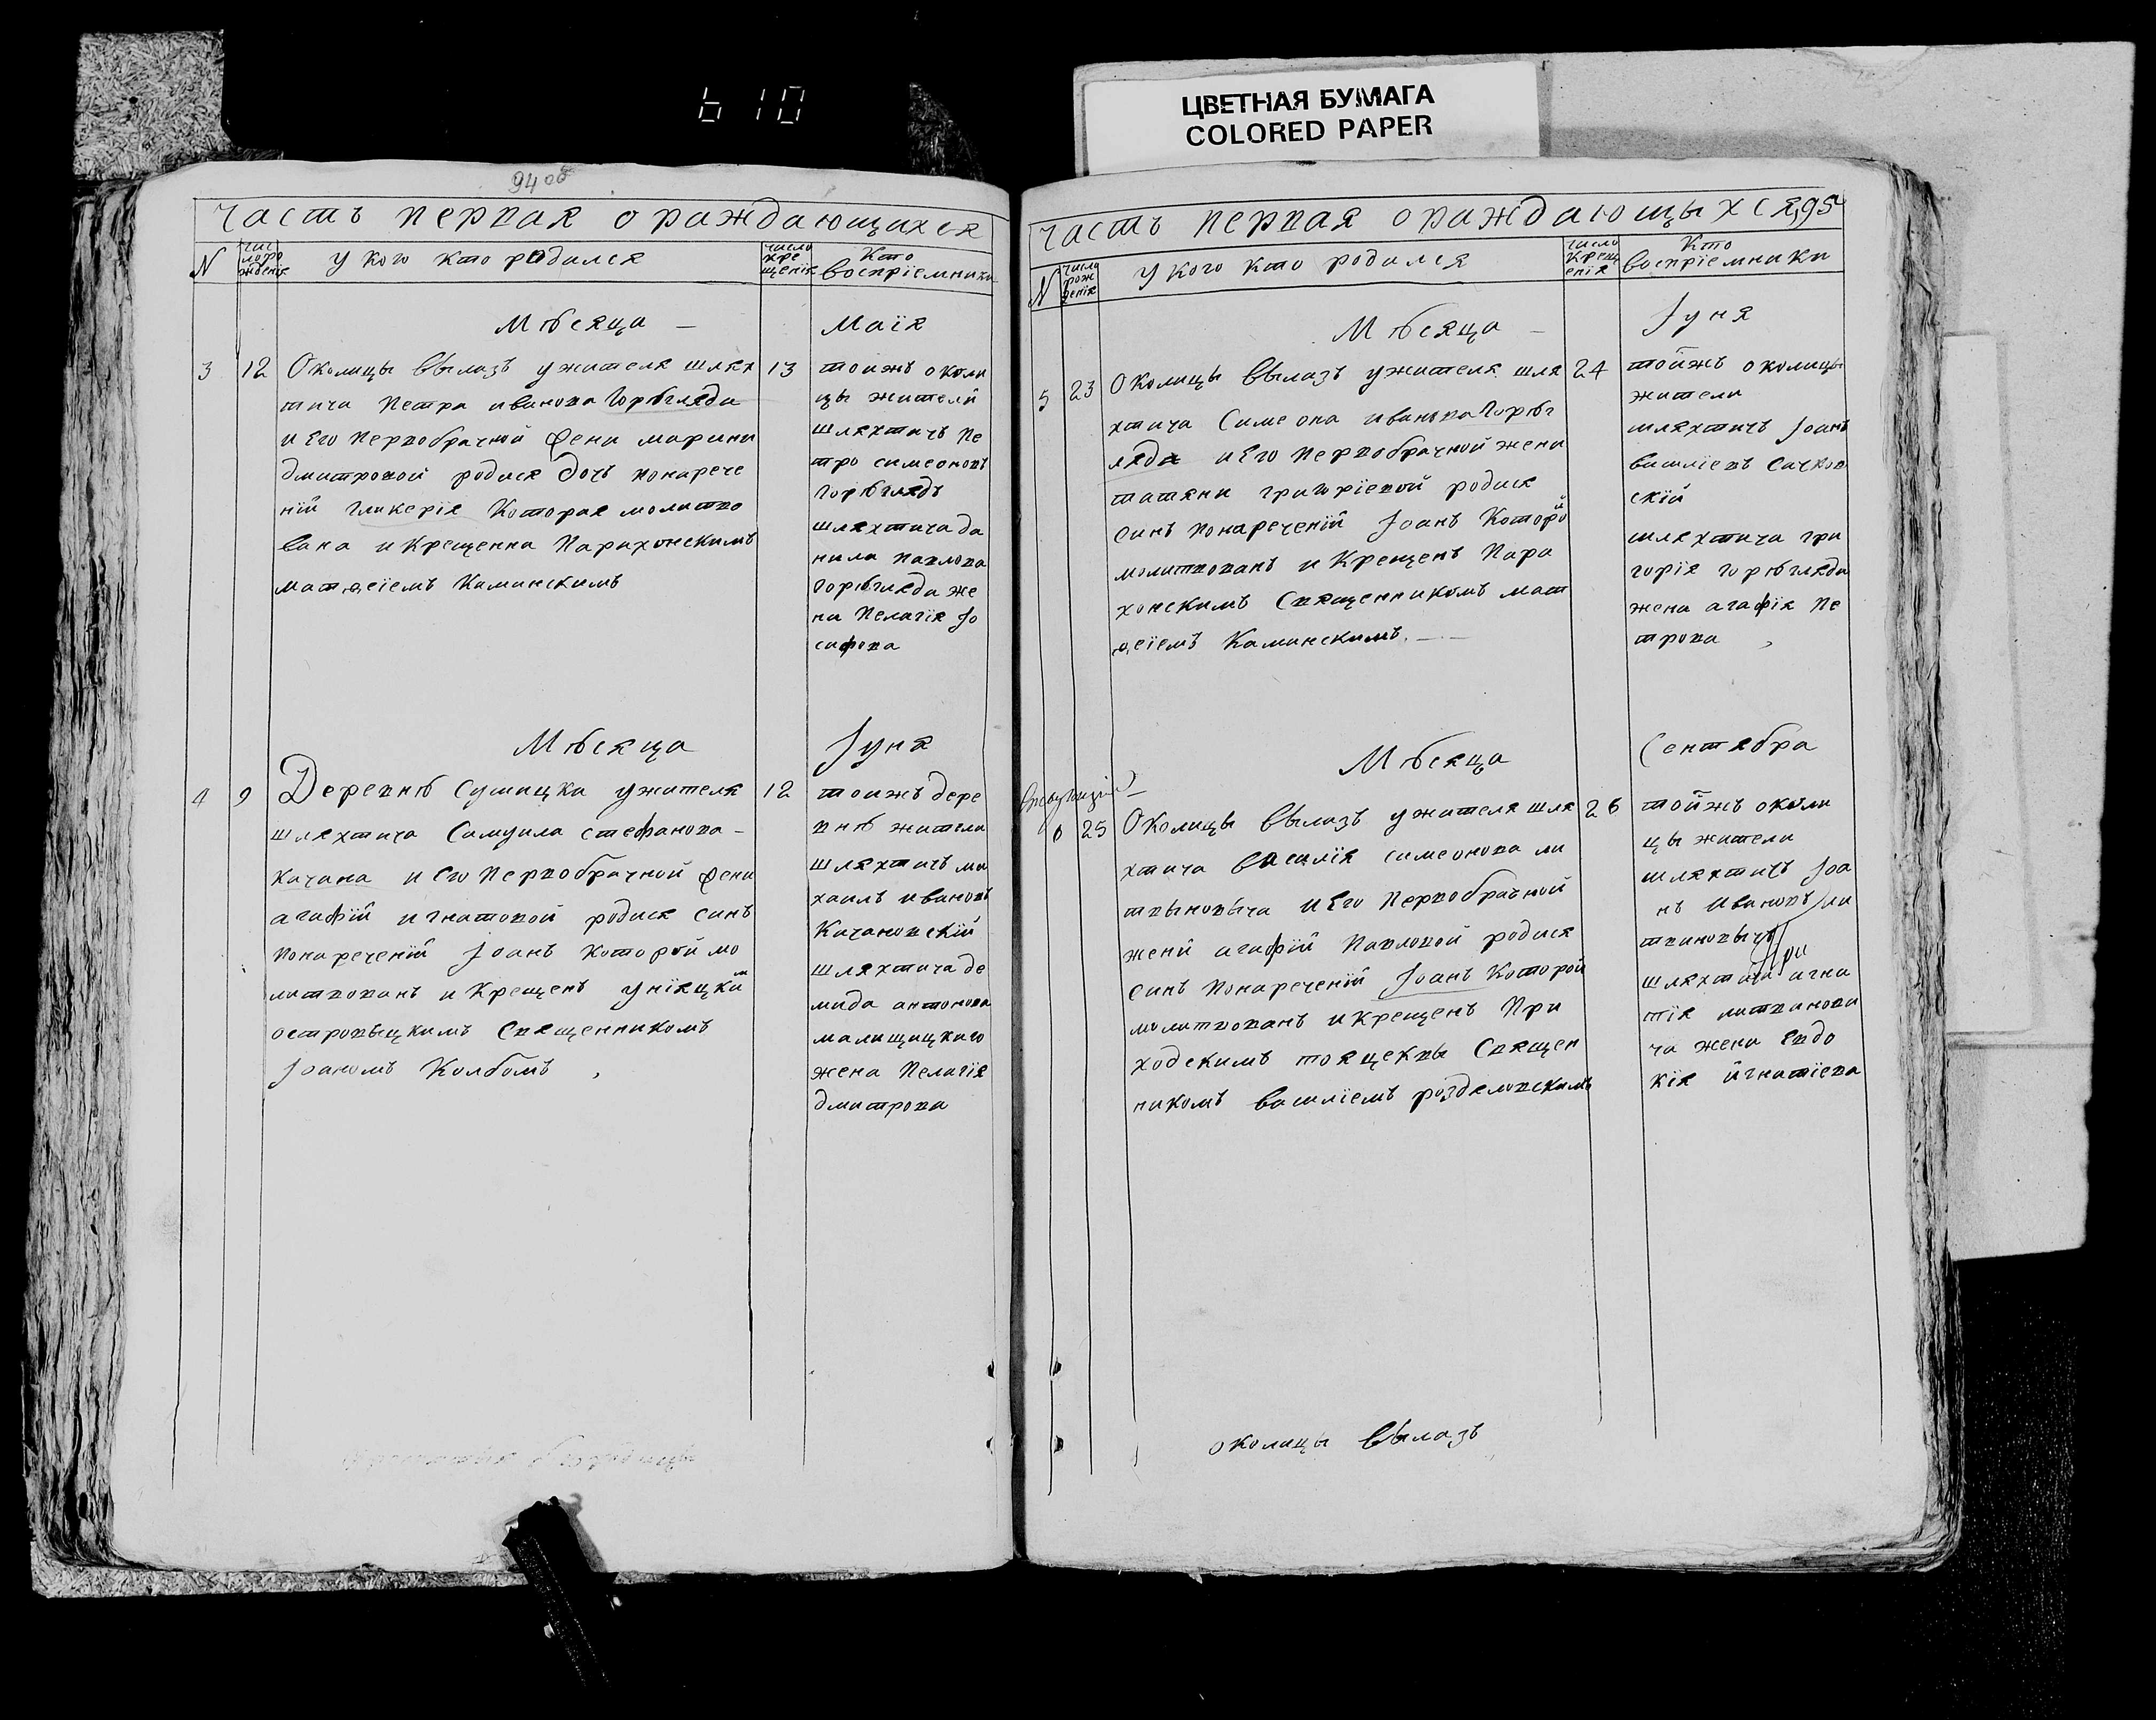 610
ЦВЕТНАЯ БУМАГА
COLORED PAPER
94 об
часть первая о раждающихся
N
чис
ло ро
жденія
у кого кто родился
число
кре
щенія
Кто
воспріемники
Мѣсяца — Маія
3 12 Околицы вылазъ ужителя шлях
тича Петра иванова Горѣгляда
и Его первобрачной Ѳени марини
дмитровой родися дочъ понарече
ній гликерія Которая молитво
вана и Крещенна Парахонскимъ
матѳеіемъ Каминскимъ
13 тоижъ околи
цы жителй
шляхтичъ Пе
тро симеоновъ
Горѣглядъ
шляхтича да
нила павлова
горѣгляда же
на Пелагія Jо
сифова
Мѣсяца Jуня
4 9 Деревнѣ Сушицка ужителя
шляхтича Самуила стефанова –
Качана и Его Первобрачной Ѳени
агафій игнатовой родися синъ
понареченій Jоанъ которой мо
литвованъ и Крещенъ уніяцкимъ
островыцкимъ Священникомъ
Jоаномъ Колбомъ ,
12 тоижъ дере
внѣ жители
шляхтичъ ми
хаилъ ивановъ
Качановскій
шляхтича де
мида антонова
малищицкаго
жена Пелагія
дмитрова
часть первая о раждающыхся, 95
N
число
рож
денія
у кого кто родился
число
крещ
енія
Кто
воспріемники
Мѣсяца — Jуня
5 23 Околицы вылазъ ужителя шля
хтича Симеона иванова Горѣг
ляда и Его первобрачной жени
татяни григоріевой родися
синъ понареченій Jоанъ Которой
молитвованъ и Крещенъ Пара
хонскимъ Священникомъ мат
ѳеіемъ Каминскимъ. —
24 тойжъ околицы
жители
шляхтичъ Jоанъ
василіевъ Сачков
скій
шляхтича гри
горія горѣгляда
жена агафія Пе
трова ,
Мѣсяца Сентября
6 25 Околицы вылазъ ужителя шля
хтича василія симеонова ли
твыновыча и Его Первобрачной
жени агафій Павловой родися
синъ понареченій Jоанъ Которой
молитвованъ и крещенъ При
ходскимъ тояцеквы Священ
никомъ василіемъ розделовскимъ
26 тойжъ околи
цы жители
шляхтичъ Jоа
нъ ивановъ ли
твиновычъ
шляхтича игна
тія литвинови
ча жена Евдо
кія игнатіева
околицы вылазъ